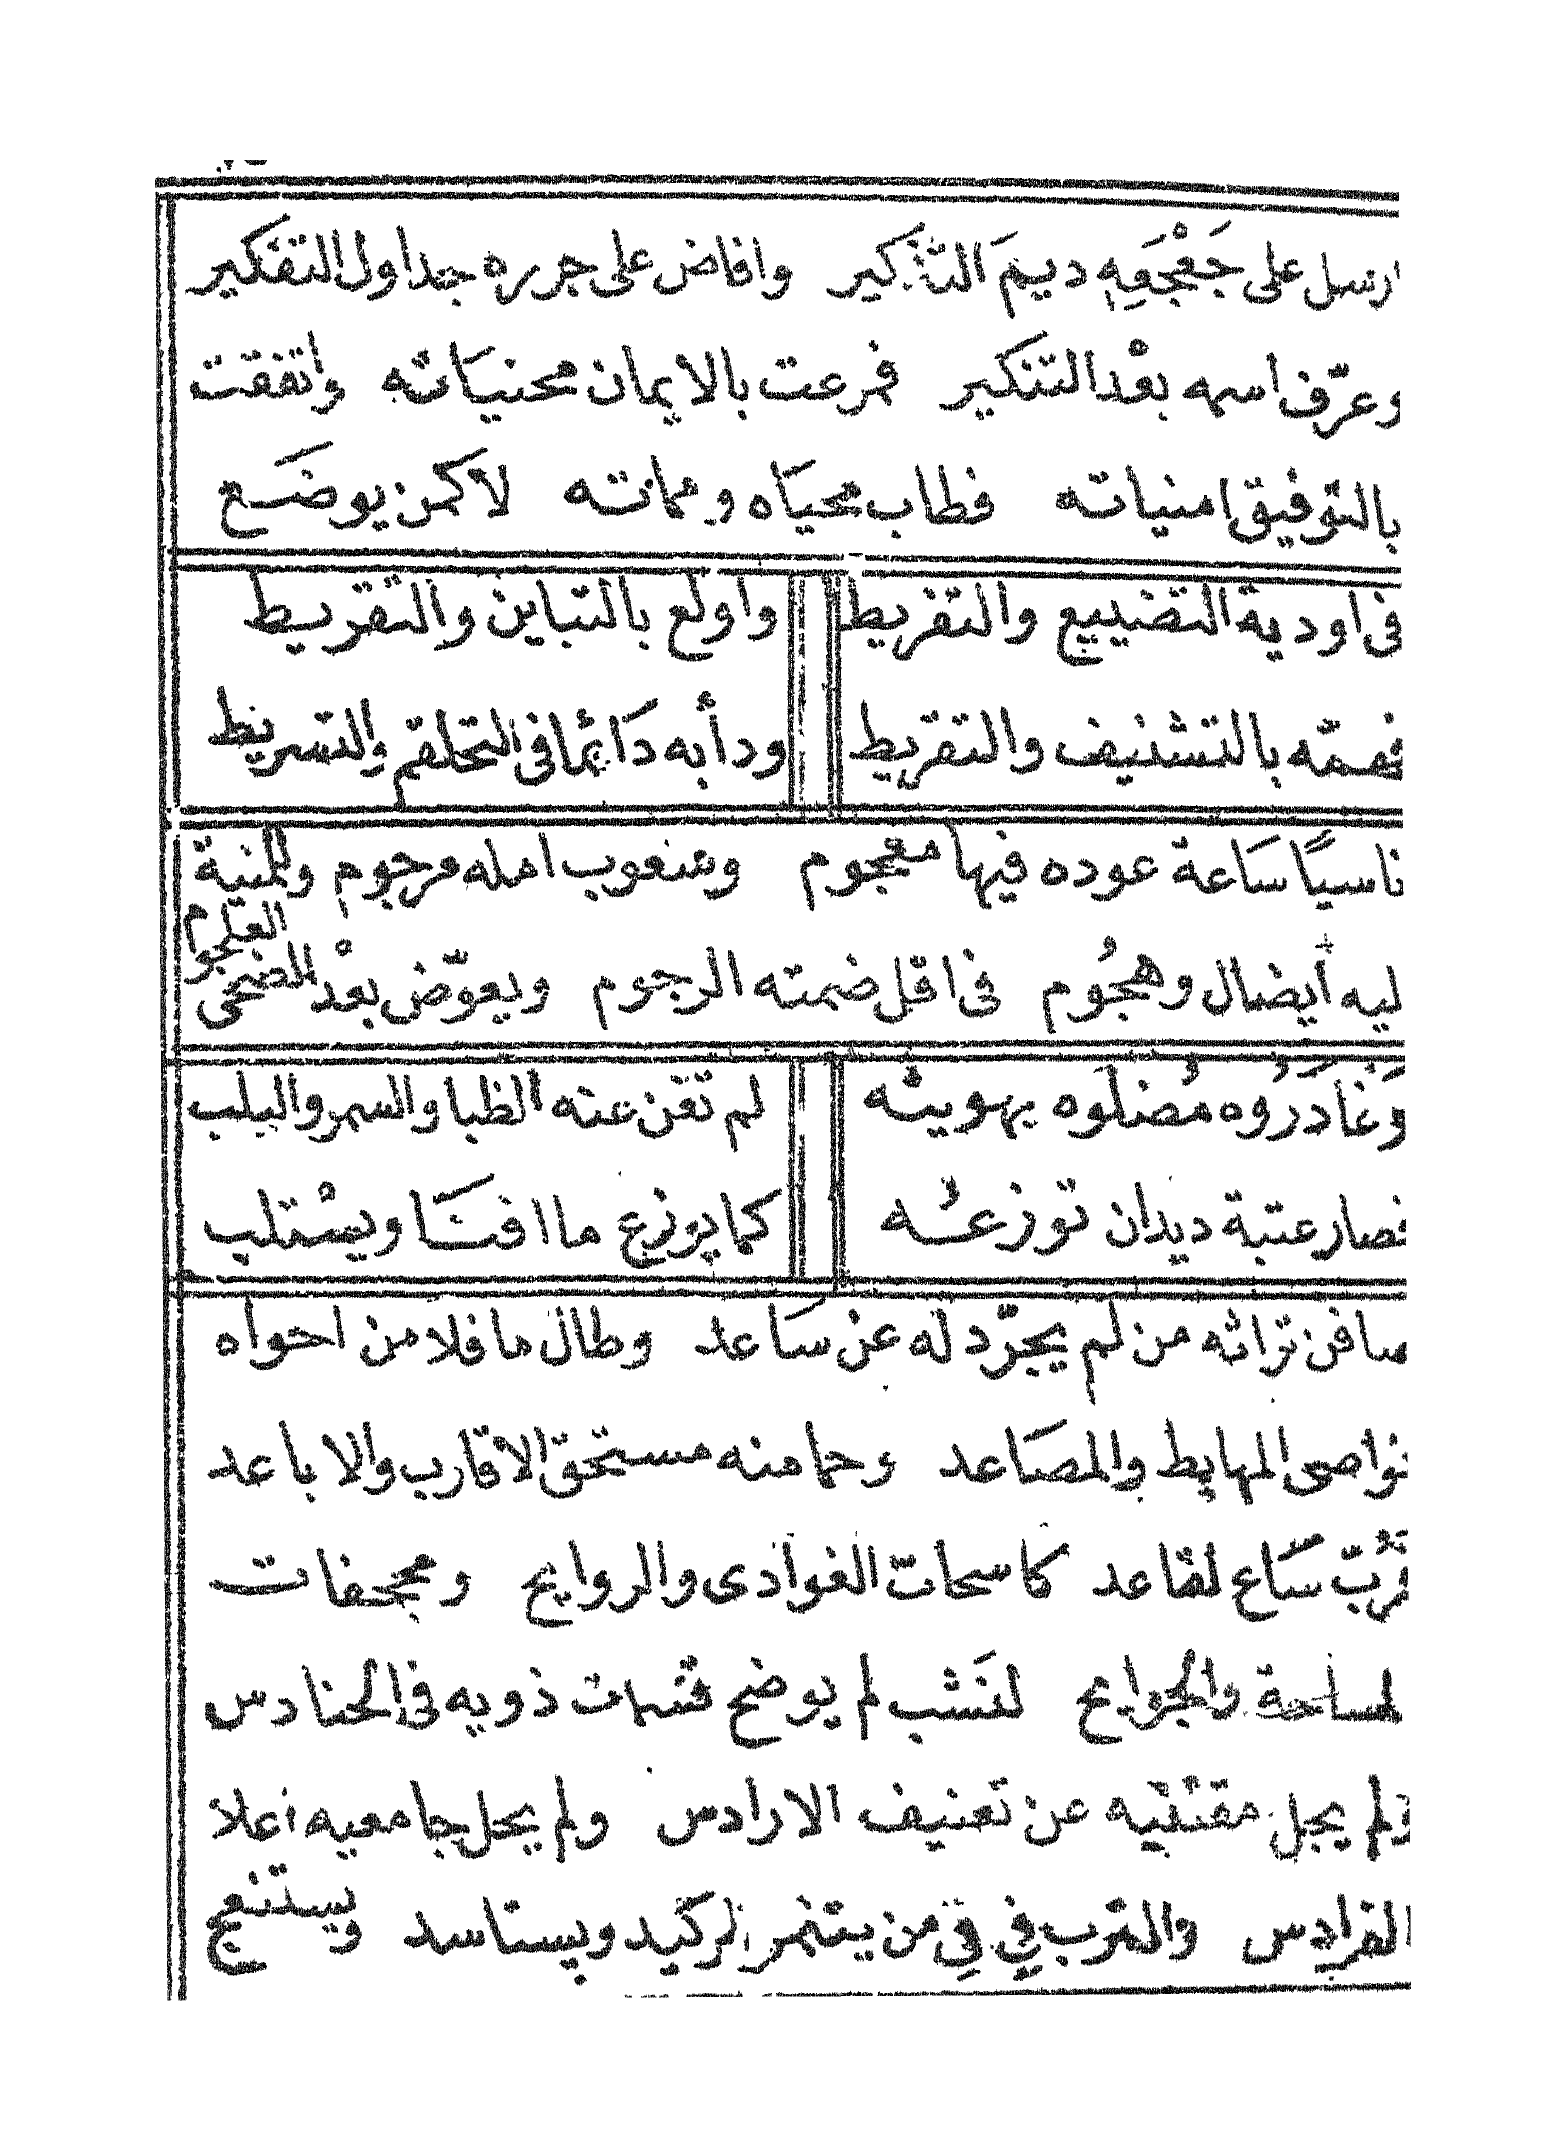 ارسل على جَعْجَعِهِ ديمَ التّذكير وافاض على جرره جداول التفكير
وعرّف اسمه بعْد التنكير فمرعت بالايمان محنيَاته واتفقت
بالتّوفيق امنياته فطاب محيَاه ومماته لا كمن يوضَع
فى اودية التضييع والتفريط واولع بالتباين والتّقريط
فهمّه بالتشنيف والتقريط ودأبه دَائمًا فى التحلقم والتسريط
ناسيًا سَاعة عوده فيها معجوم وشعوب امله مرجوم وللمنية
ليه أيضال وهجُوم فى اقل ضمته الرجوم ويعوّض بعْد الضحى العلجوم
وغادرُوه مُضلوه بهوبيّه لم تغن عنه الظبا والسمر واليلب
فصار عتبة ديدان توزعْـه كما يوزع ما افنَـا ويسْتلب
صافن تراثه من لم يجرّد له عن سَاعد وطال ما فلا من احواه
نواصى المهابط والمصَاعد وحما منه مستحق الاقارب والاباعد
فرُبّ سَاع لقاعد كاسحات الغوادى والروايح ومجحفات
لمساحة والجوايح لنَشب لم يوضح قسمات ذويه فى الحنادس
ولم يجل مقتفيه عن تعنيف الارادس ولم يحل جامعيه اعلا
الفرادس والترب فِي فِي من يتنمر لركيد ويستاسد ويستنعج